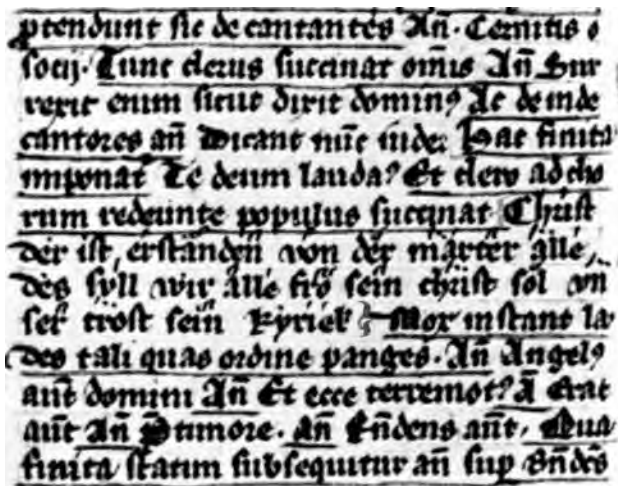 ptendunt sic decantantes An̄. Cernitis o
socij. Tunc clerus succinat om̄is An̄ Sur
rexit enim sicut dixit domin⁹ Ac deinde
cantores an̄ Dicant nūc iudei Hac finita
imponat Te deum lauda⁹ Et clero ad cho
rum redeunte populus succinat Christ
der ist erstanden von der marter alle
des syll wir alle fro sein christ sol vn
ser trost sein kyriel Mox instant la
des tali quas ordine panges. An̄ Angel⁹
aūt domini An̄ Et ecce terremot⁹ A̅ Erat
aūt An̄ P timore. An̄ Rn̄dens aūt. Qua
finita statim subsequitur an̄ sup Bn̄dc̄s